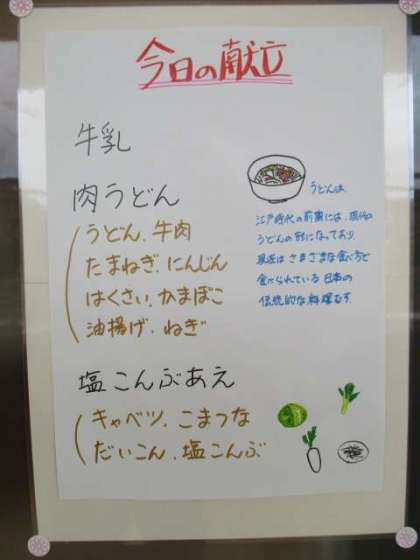 今日の献立
牛乳
肉うどん
うどん、牛肉
たまねぎ、にんじん
はくさい、かまぼこ
油揚げ、ねぎ
うどんは、
江戸時代の前期には、現代の
うどんの形になっており、
最近は さまざまな食べ方で
食べられている 日本の
伝統的な料理です。
塩こんぶあえ
キャベツ、こまつな
だいこん、塩こんぶ